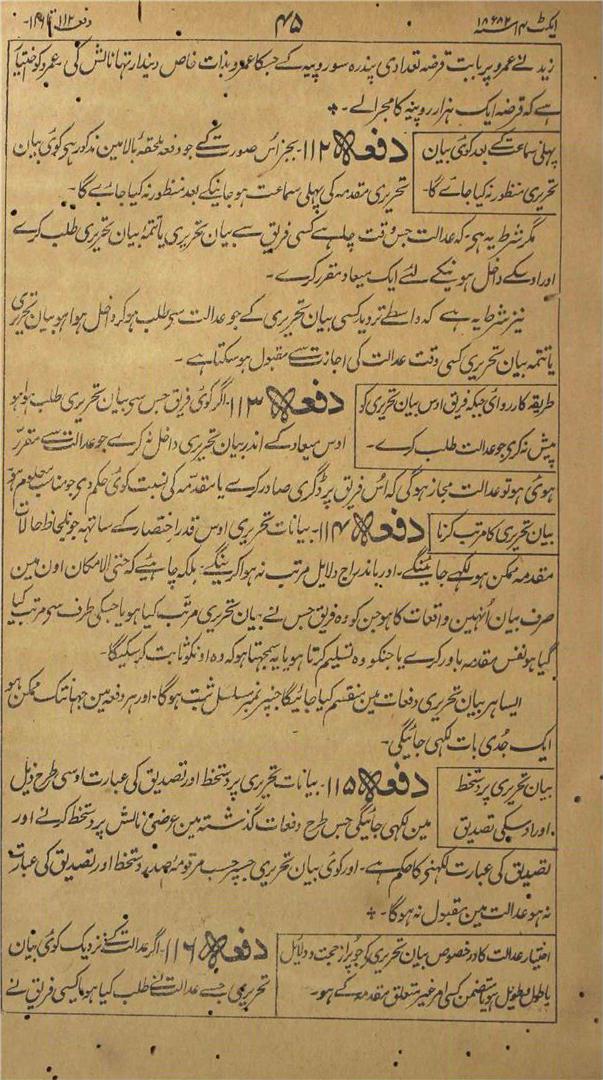 ایکٹ ۱۴ سنہ ۱۸۸۲ ۴۵ دفعہ ۱۱۲ لغایت
زید نے عمرو پر بابت قرضہ تعدادی پندرہ سو روپیہ کے جسکا عمرو بذات خاص دیندار تہا نالش کی ۔ عمرو کو اختیار
ہے کہ قرضہ ایک ہزار روپیہ کا مجرا لے ۔
پہلی سماعت کے بعد کوئی بیان
تحریری منظور نہ کیا جاے گا ۔
دفعہ ۱۱۲ ۔ بجز اُس صورت کے جو دفعہ ملحقہ بالا مین مذکور ہی کوئی بیان
تحریری مقدمہ کی پہلی سماعت ہو جانیکے بعد منظور نہ کیا جاے گا ۔
مگر شرط یہ ہی کہ عدالت جس وقت چاہے کسی فریق سے بیان تحریری یا تتمہ بیان تحریری طلب کرے
اور اوسکے داخل ہونیکے لئے ایک میعاد مقرر کرے ۔
نیز شرط یہ ہے کہ واسطے تردید کسی بیان تحریری کے جو عدالت سی طلب ہو کر داخل ہوا ہو بیان تحریری
یا تتمہ بیان تحریری کسی وقت عدالت کی اجازت سے مقبول ہو سکتا ہے ۔
طریقہ کارروائی جبکہ فریق اوس بیان تحریری کو
پیش نہ کری جو عدالت طلب کرے ۔
دفعہ ۱۱۳ ۔ اگر کوئی فریق جس سی بیان تحریری طلب ہوا ہو
اوس میعاد کے اندر بیان تحریری داخل نہ کرے جو عدالت سے مقرر
ہوئی ہو تو عدالت مجاز ہوگی کہ اُس فریق پر ڈگری صادر کرے یا مقدمہ کی نسبت کوئی حکم دی جو مناسب معلوم ہو
بیان تحریری کا مرتب کرنا
دفعہ ۱۱۴ ۔ بیانات تحریری اوس قدر اختصار کے ساتہہ جو بلحاظ حالات
مقدمہ ممکن ہو لکہے جائینگے ۔ اور باندراج دلایل مرتب نہ ہوا کرینگے ۔ بلکہ چاہئے کہ حتی الامکان اون مین
صرف بیان اُنہین واقعات کا ہو جن کو وہ فریق جس نے بیان تحریری مرتب کیا ہو یا جسکی طرف سی مرتب کیا
گیا ہو نفس مقدمہ باور کرے یا جنکو وہ تسلیم کرتا ہو یا یہ سمجہتا ہو کہ وہ اونکو ثابت کر سکیگا ۔
ایسا ہر بیان تحریری دفعات مین منقسم کیا جائیگا جنپر نمبر مسلسل ثبت ہوگا ۔ اور ہر دفعہ مین جہانتک ممکن ہو
ایک جُدی بات لکہی جائیگی ۔
بیان تحریری پر دستخط
اور اوسکی تصدیق
دفعہ ۱۱۵ ۔ بیانات تحریری پر دستخط اور تصدیق کی عبارت اوسی طرح ذیل
مین لکہی جائیگی جس طرح دفعات گذشتہ مین عرضی نالش پر دستخط کرنے اور
تصدیق کی عبارت لکہنی کا حکم ہے ۔ اور کوئی بیان تحریری جسپر حسب مرقومۂ صدر دستخط اور تصدیق کی عبارت
نہ ہو عدالت مین مقبول نہ ہوگا ۔
اختیار عدالت کا در خصوص بیان تحریری کی جو پر از حجت و دلایل
یا طول طویل ہو یا متضمن کسی امر غیر متعلق مقدمہ کے ہو ۔
دفعہ ۱۱۶ ۔ اگر عدالت کے نزدیک کوئی بیان
تحریری جسے عدالت نے طلب کیا ہو یا کسی فریق نے